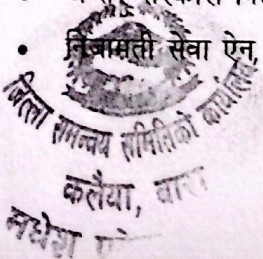 निजामती सेवा ऐन,
जिल्ला समन्वय समितिको कार्यालय
कलैया, बारा
मधेश